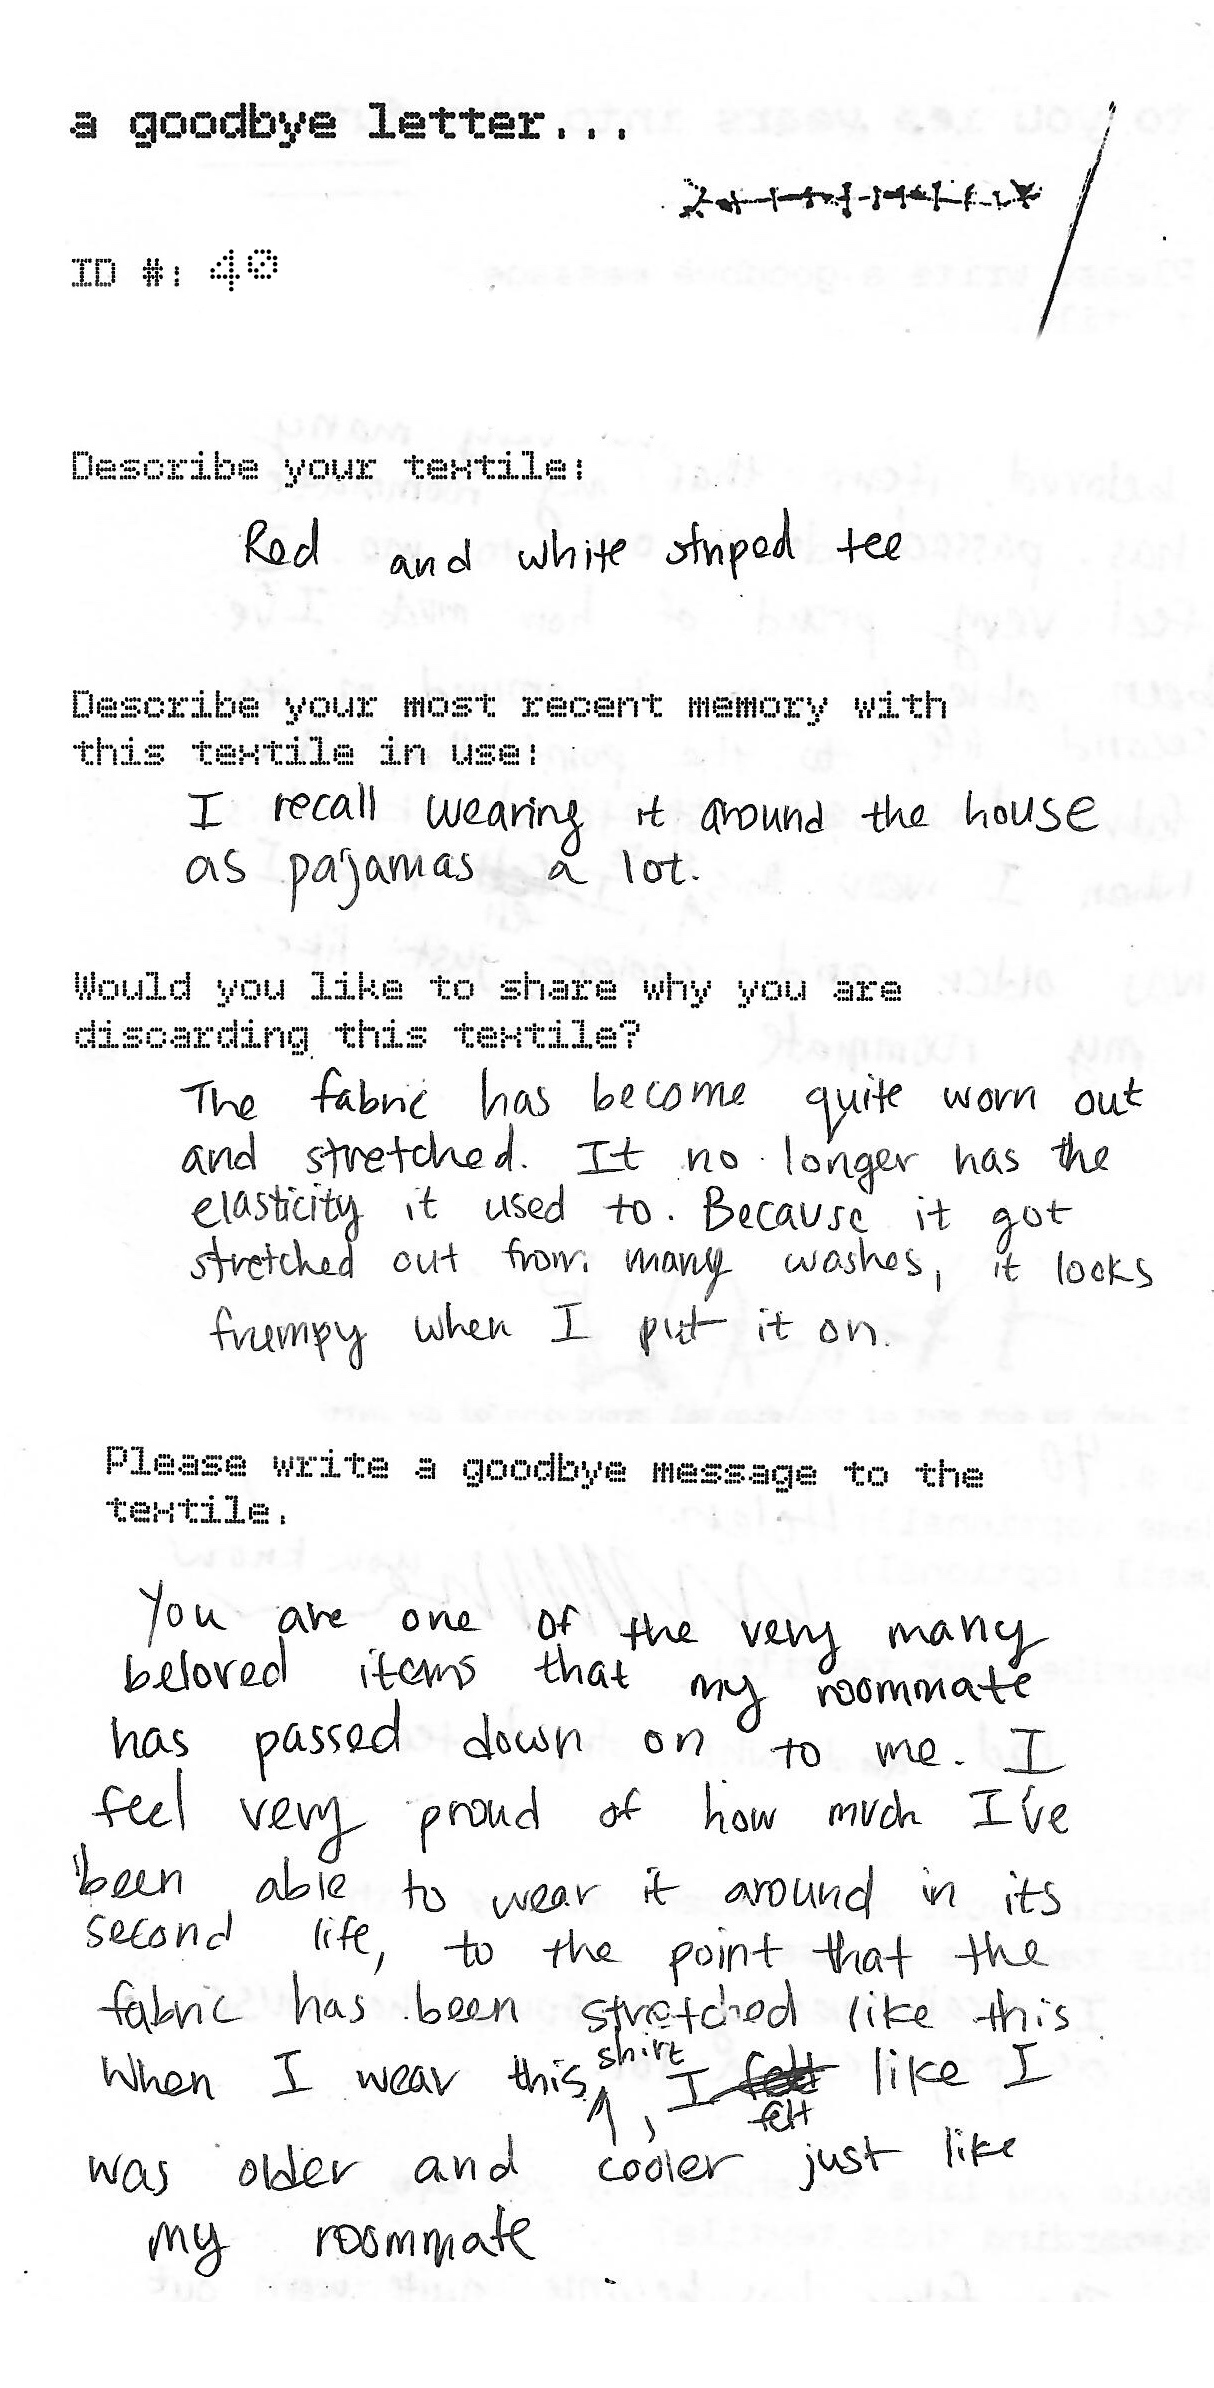 a goodbye letter...
ID #: 40
Describe your textile:
Red and white striped tee
Describe your most recent memory with
this textile in use:
I recall wearing it around the house
as pajamas a lot.
Would you like to share why you are
discarding this textile?
The fabric has become quite worn out
and stretched. It no longer has the
elasticity it used to. Because it got
stretched out from many washes, it looks
frumpy when I put it on.
Please write a goodbye message to the
textile.
You are one of the very many
beloved items that my roommate
has passed down on to me. I
feel very proud of how much I've
been able to wear it around in its
second life, to the point that the
fabric has been stretched like this.
When I wear this shirt, I felt like I
was older and cooler just like
my roommate